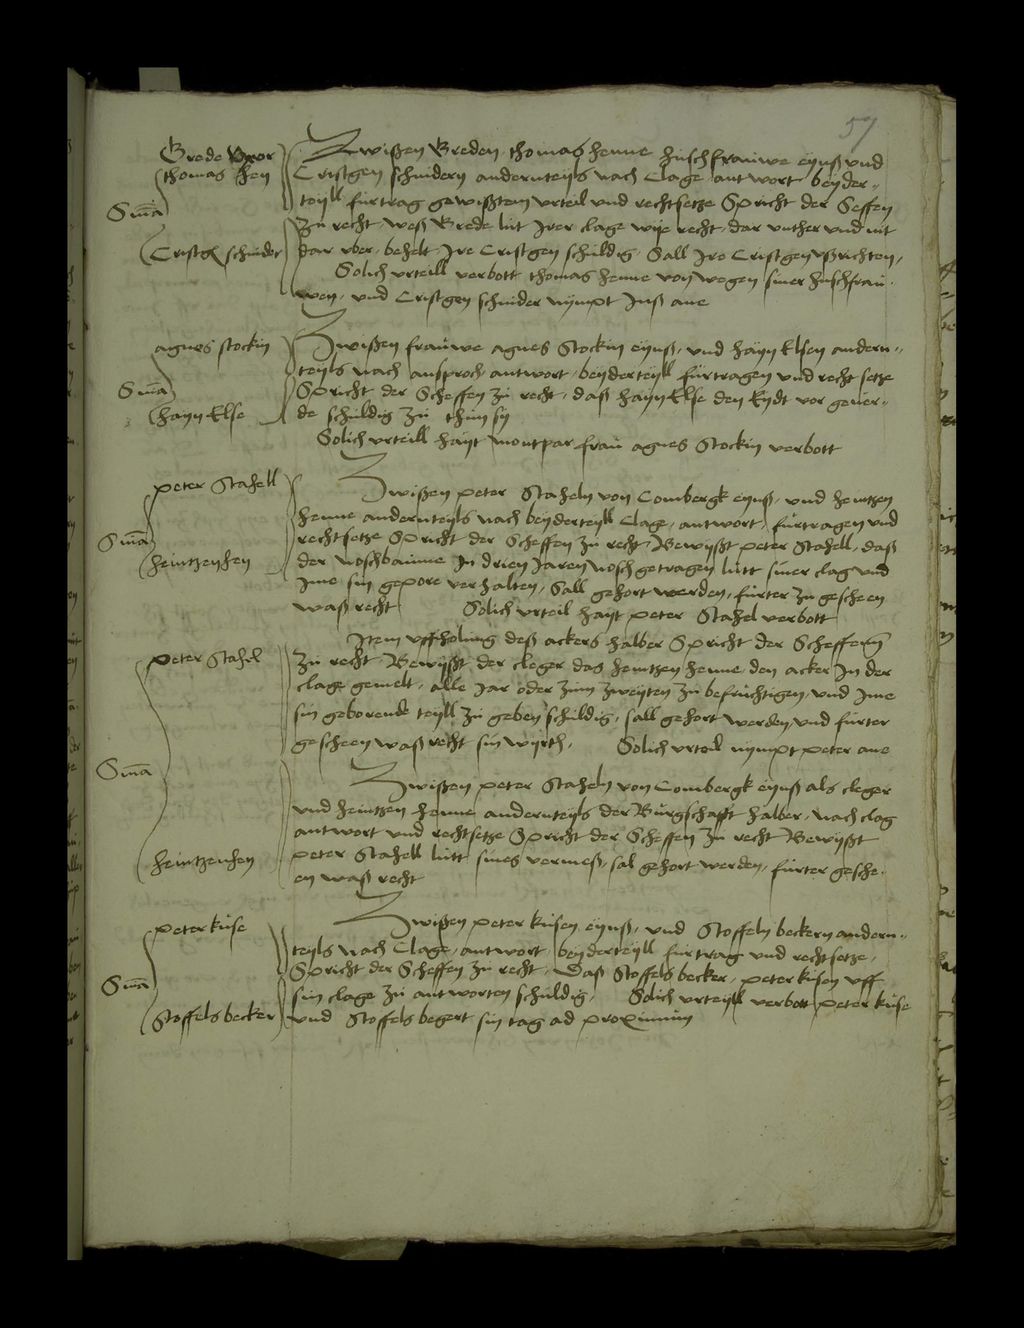 57
Grede Uxor
thomas hen
Sma
Cristgen schnider
Zwißen Greden thomas henne hußfrauwe eynß und
Cristgen schnidern andernteyls nach Clage antwort beyder-
teyll furtrag gewißtem urteil und rechtsetze Spricht der Scffen
zu recht weß Grede lut Irer clage wije recht dar unther und nit
dar uber behelt Ire Cristgen schuldig Sall Ire Cristgen ußrichten,
Solich urteill verbott thomas henne von wegen siner hußfrau-
wen, und Cristgen schnider nympt Inß ane
agnes stockin
Sma
hayn Else
Zwißen frauwe agnes Stockin eynß, und hayn Elsen andern-
teyls nach ansproch antwort beyderteyll furtragen und recht setze
Spricht der Scheffen zu recht, daß hayn Else den Eydt vor gever-
de schuldig zu thun sy
Solich urteill hayt montpar frau agnes Stockin verbott
peter Stahell
Sma
heintzenhen
Zwißen peter Staheln von Combergk eynß, und heintzen
henne andernteyls nach beyderteyll Clage, antwort, furtragen und
rechtsetze Spricht der Scheffen zu recht Bewyßt peter Stahell, daß
der noschbaume In drien Jaren nosch getragen lutt siner clag und
Ime sin gepore verhalten, Sall gehort werden, furter zu gescheen
waß recht Solich urteil hayt peter Stahel verbott
peter Stahel
Sma
heintzenhen
Item uffholung deß ackers halber Spricht der Scheffenn
zu recht Bewyßt der cleger das heintzen henne den acker In der
clage gemelt, alle Jar oder zum zweyten zu befruchtigen, und Ime
sin geborende teyll zu geben schuldig, sall gehort werden, und furter
gescheen waß recht sin wyrth, Solich urteil nympt peter ane
Zwißen peter Staheln von Combergk eynß als cleger
und heintzen henne andernteyls der Burgschafft halber, nach clag
antwort und rechtsetze Spricht der Scheffen zu recht Bewyßt
peter Stahell lutt sines vermeß, sal gehort werden, furter gesche-
en waß recht
peter kuse
Sma
Stoffels becker
Zwißen peter kusen eynß, und Stoffeln beckern andern-
teyls nach Clage, antwort beyderteyll furtrag und rechtsetze,
Spricht der Scheffen zu recht, Daß Stoffels becker, peter kusen uff
sin clage zu antworten schuldig, Solich urteyll verbott peter kuse
und Stoffels begert sin tag ad proximum